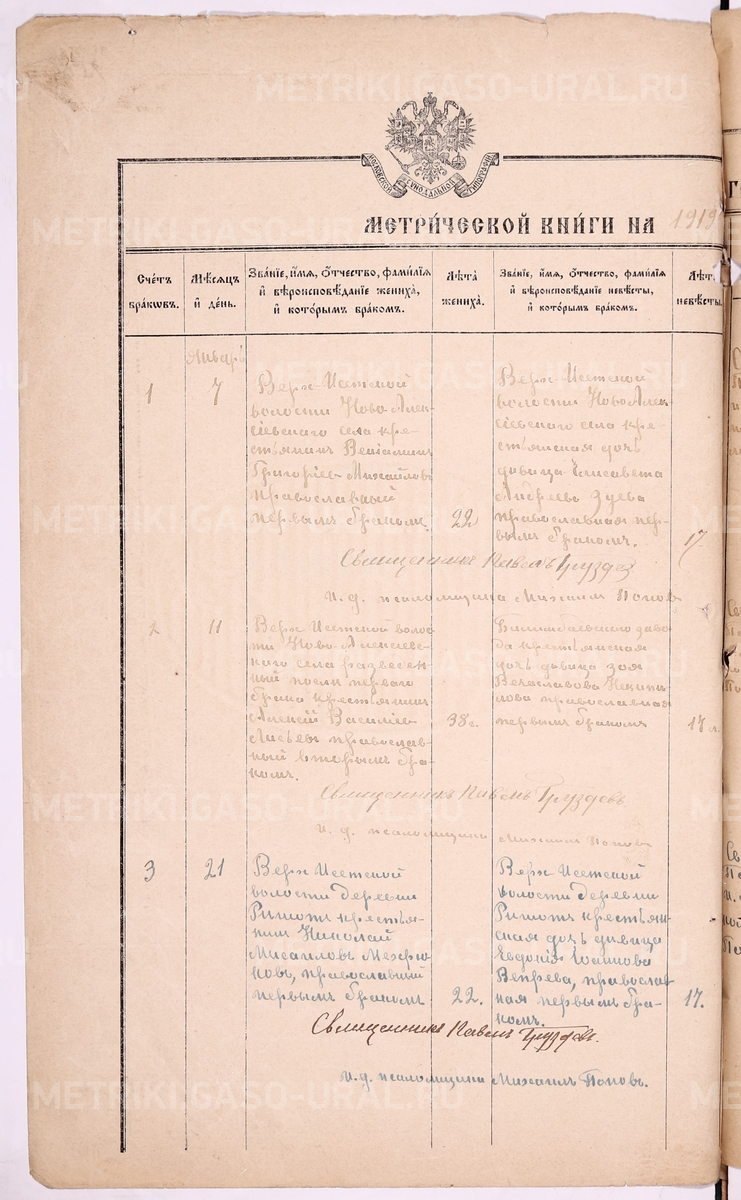 METRIKI.GASO-URAL.RU
МОСКОВСКОЙ СѴНОДАЛЬНОЙ ТИПОГРАФІИ
МЕТРИ́ЧЕСКОЙ КНИ́ГИ НА 1919
Сче́тъ бра́кѡвъ.
Мѣ́сяцъ и҆ де́нь.
Зва́нїе, и҆́мя, ѻ҆́тчество, фами́лїя и҆ вѣроисповѣ́данїе жениха̀, и҆ кото́рымъ бра́комъ.
Лѣ́та жениха̀.
Зва́нїе, и҆́мя, ѻ҆́тчество, фами́лїя и҆ вѣроисповѣ́данїе невѣ́сты, и҆ кото́рымъ бра́комъ.
Лѣ́т.
невѣ́сты.
Январь
1
7
Верх-Исетской
волости Ново-Алек-
сіевскаго села кре-
стьянинъ Веніаминъ
Григоріев Михайловъ
православный
первымъ бракомъ
22
Верх-Исетской
волости Ново-Алек-
сіевскаго села кре-
стьянская дочь
девица Елисавета
Андреева Зуева
православная пер-
вымъ бракомъ.
17
Священникъ Павелъ Груздев
И. д. псаломщика Михаилъ Попов
2
11
Верх Исетской воло-
сти Ново-Алексіев-
скаго села разведен-
ный после перваго
брака крестьянинъ
Алексій Василіев
православ-
ный вторымъ бра-
комъ.
38 л.
Билимбаевского заво-
да крестьянская
дочь девица Зоя
Вечаславова
православная
первымъ бракомъ
17 л.
Священникъ Павелъ Груздевъ
И. д. псаломщика Михаил Попов
3
21
Верх Исетской
волости деревни
Решотъ крестья-
нин Николай
Михаиловъ Мехро-
ковъ, православный
первымъ бракомъ
22.
Верх Исетской
волости деревни
Решотъ крестьян-
ская дочь девица
Евдокія Іоаннова
Вепрева, православ-
ная первымъ бра-
комъ.
17.
Священникъ Павелъ Груздевъ.
И. д. псаломщика Михаилъ Поповъ.